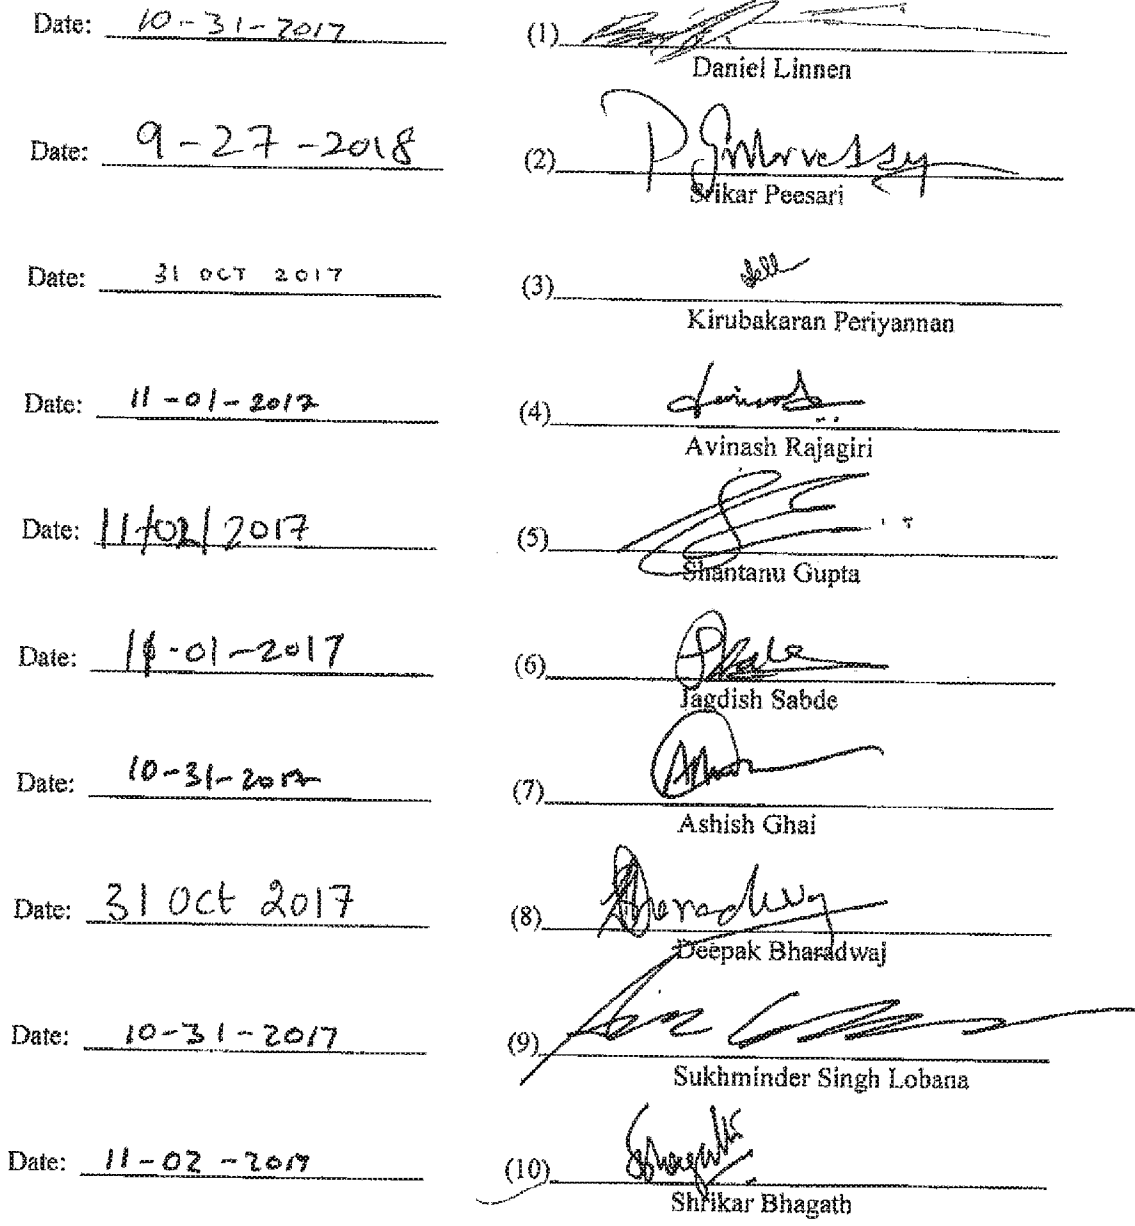 Date: 10-31-2017 (1)
Daniel Linnen
Date: 9-27-2018 (2)
Srikar Peesari
Date: 31 OCT 2017 (3)
Kirubakaran Periyannan
Date: 11-01-2017 (4)
Avinash Rajagiri
Date: 11/02/2017 (5)
Shantanu Gupta
Date: 11-01-2017 (6)
Jagdish Sabde
Date: 10-31-2017 (7)
Ashish Ghai
Date: 31 Oct 2017 (8)
Deepak Bharadwaj
Date: 10-31-2017 (9)
Sukhminder Singh Lobana
Date: 11-02-2017 (10)
Shrikar Bhagath